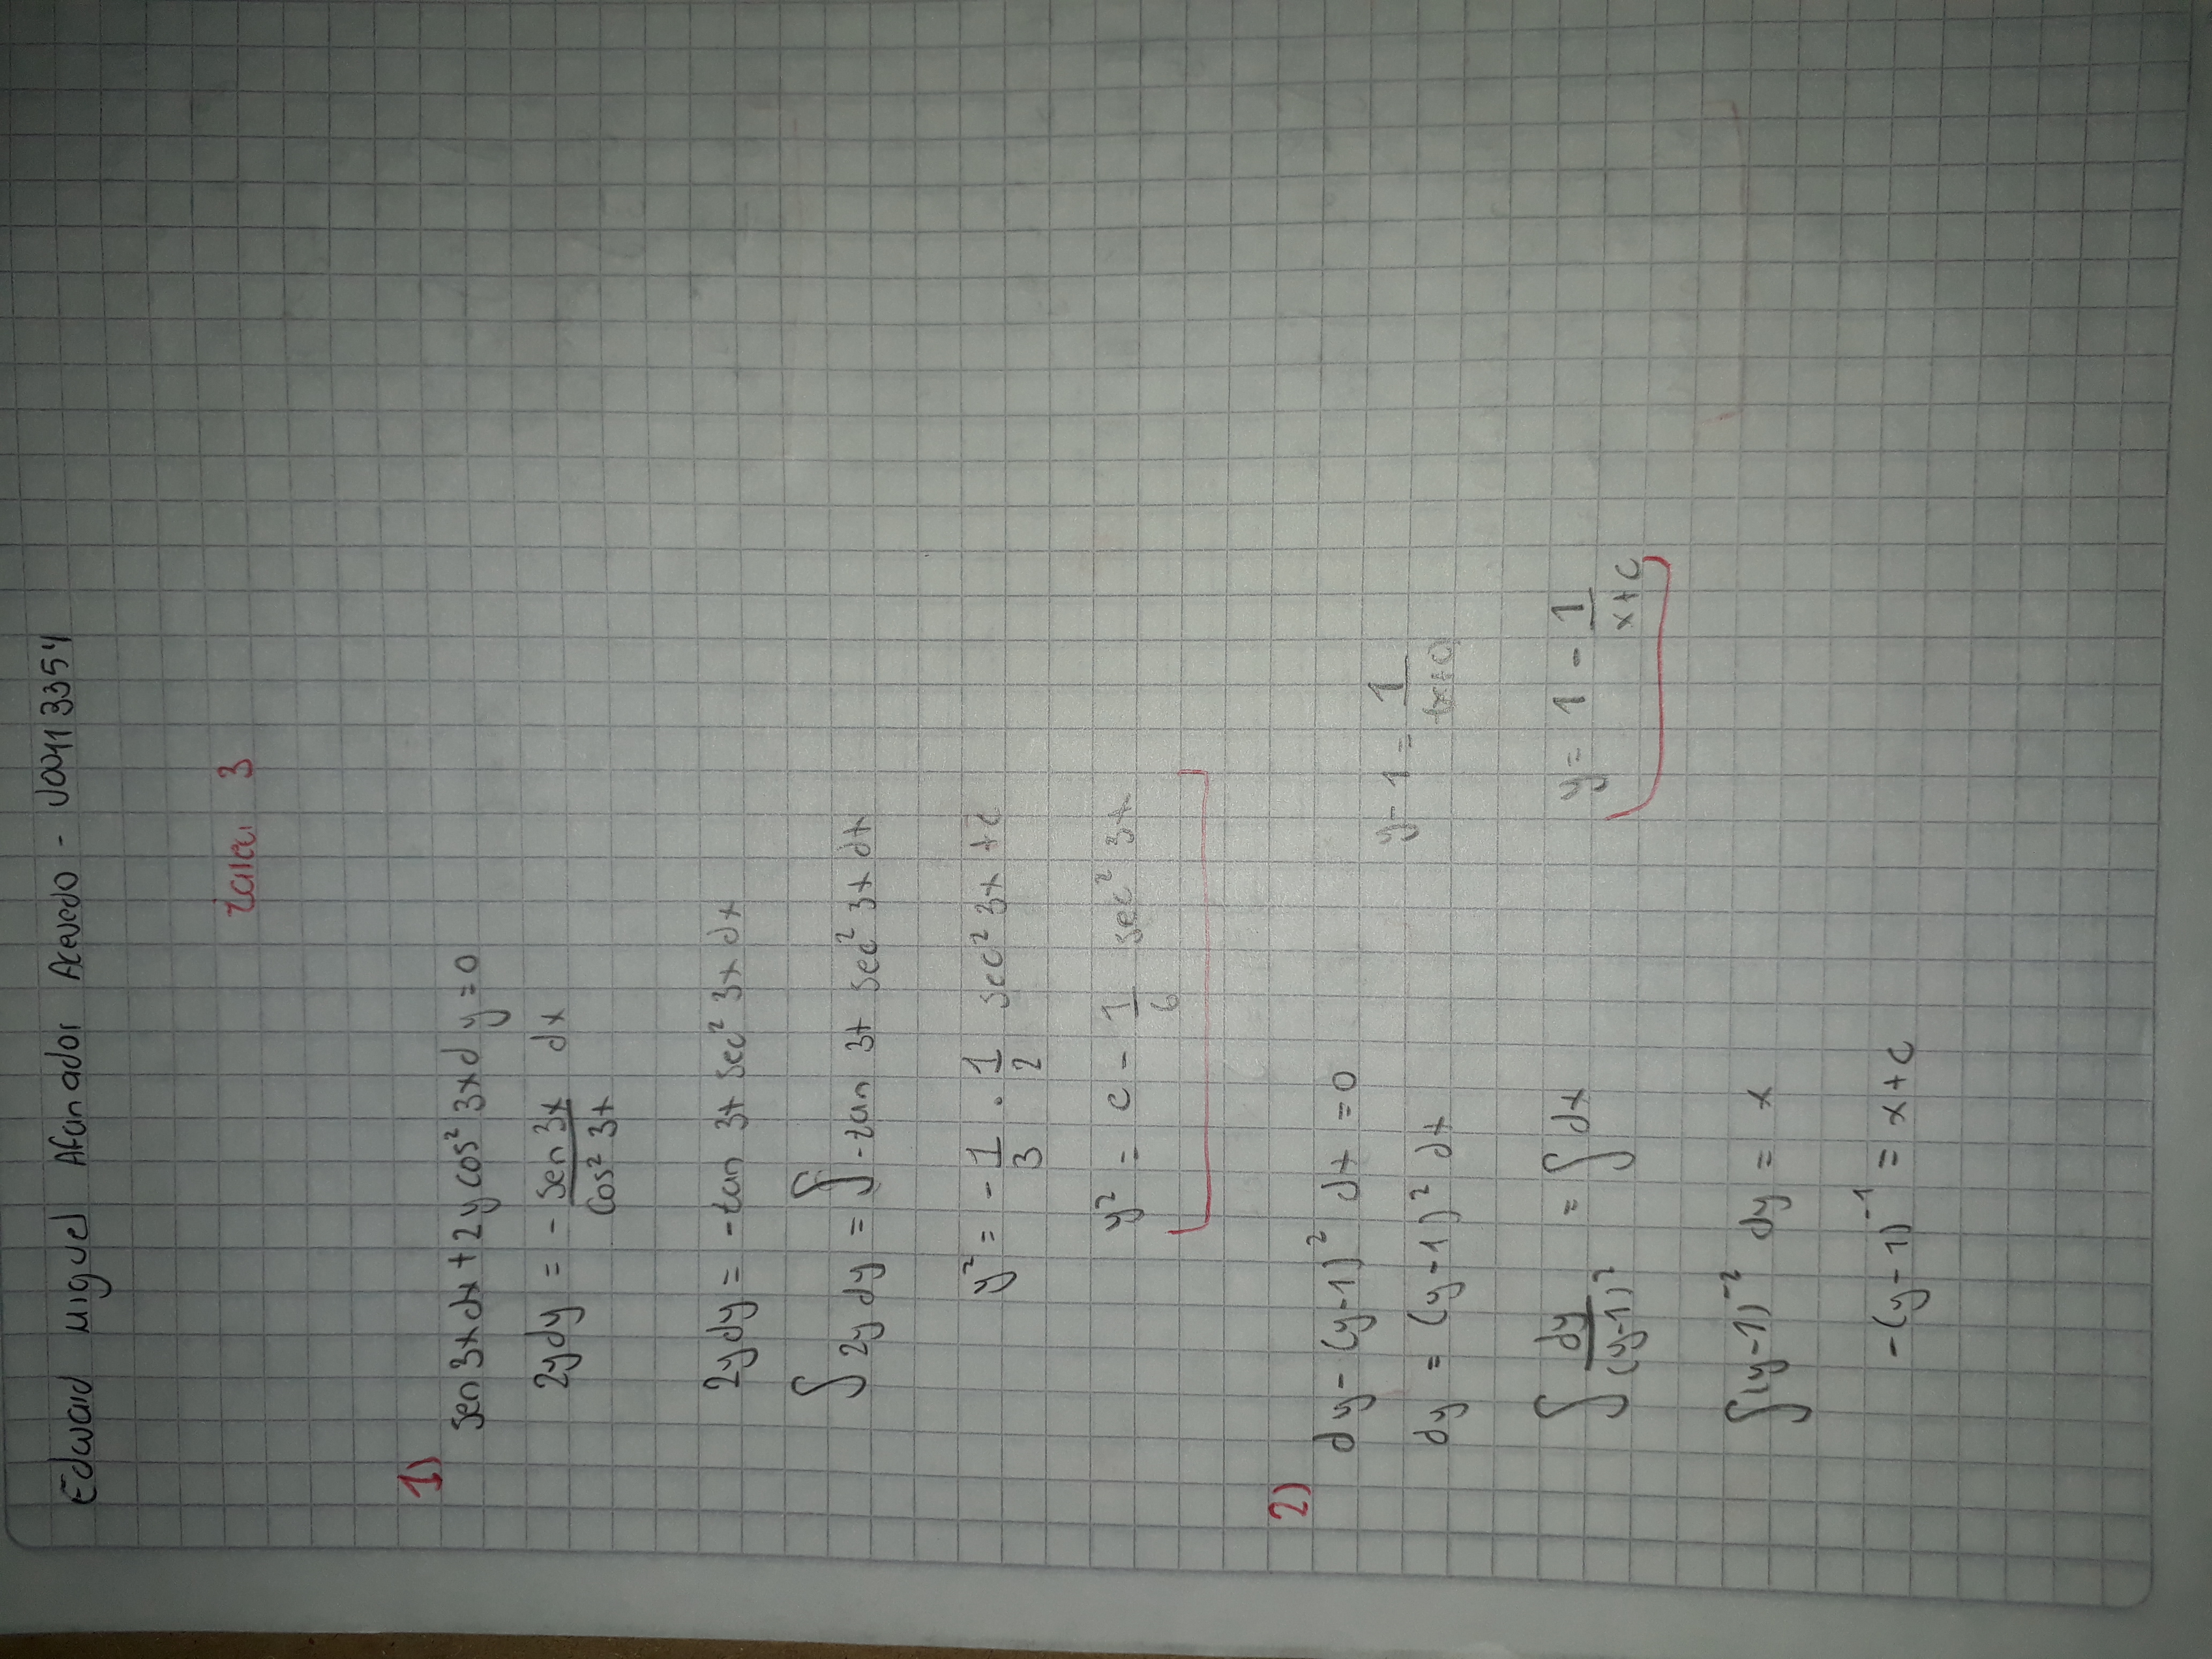 Edward Miguel Afanador Acevedo - U00113354
tarea 3
1)
sen 3x dx + 2y cos² 3x dy = 0
2y dy = - sen 3x / cos² 3x dx
2y dy = -tan 3x sec² 3x dx
∫ 2y dy = ∫ -tan 3x sec² 3x dx
y² = - 1/3 · 1/2 sec² 3x + c
y² = c - 1/6 sec² 3x
2)
dy - (y-1)² dx = 0
dy = (y-1)² dx
∫ dy / (y-1)² = ∫ dx
∫ (y-1)⁻² dy = x
-(y-1)⁻¹ = x + c
y - 1 = 1 /
y = 1 - 1 / x+c